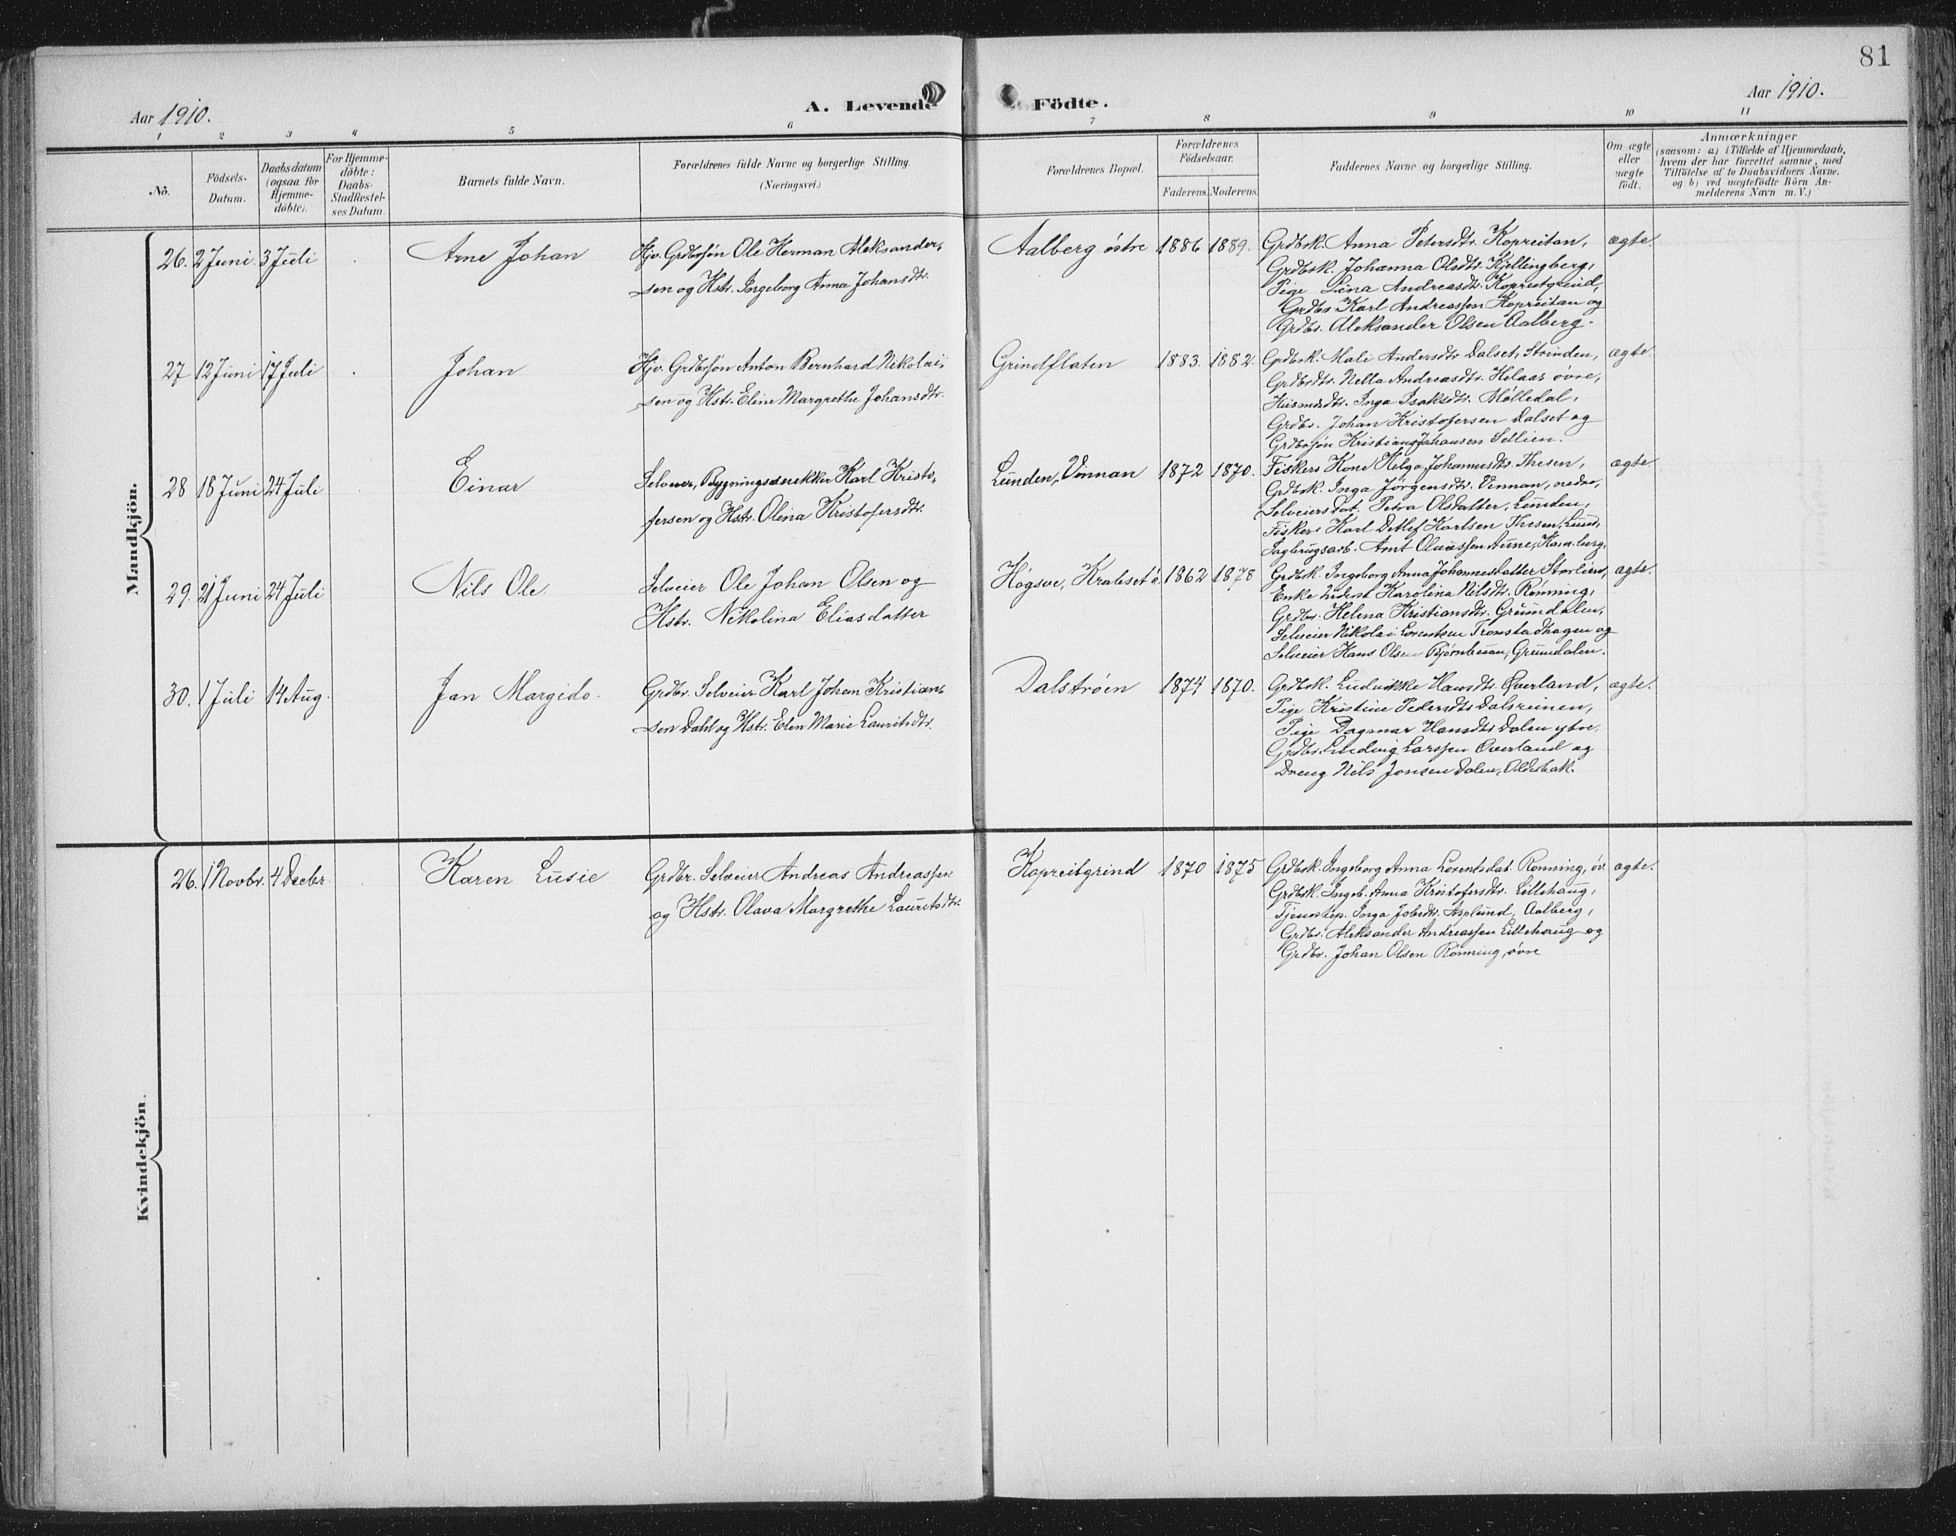 81
Aar 1910.
A. Levende Födte.
Aar 1910.
1 2 3 4 5 6 7 8 9 10 11
No.
Födsels-
Datum.
Daabsdatum
(ogsaa for
Hjemme-
döbte).
For Hjemme-
döbte:
Daabs-
Stadfæstel-
ses Datum
Barnets fulde Navn.
Forældrenes fulde Navne og borgerlige Stilling.
(Næringsvei.)
Forældrenes Bopæl.
Forældrenes
Födselsaar.
Faderens Moderens.
Faddernes Navne og borgerlige Stilling.
Om ægte
eller
uægte
födt.
Anmærkninger
(saasom: a) i Tilfælde af Hjemmedaab,
hvem der har forrettet samme, med
Tilföielse af to Daabsvidners Navne.
og b) ved uægtefödte Börn An-
melderens Navn m. V.)
Mandkjön.
26. 2 Juni. 3 Juli
Arne Johan
Hjv. Grdbrsøn Ole Herman Aleksander-
sen og Hstr. Ingeborg Anna Johansdtr.
Aalberg østre 1886 1889.
Grdbsk. Anna Petersdtr. Kopreitan,
Grdbsk. Johanna Olsdtr. Kjellingberg,
Pige Lina Andreasdtr. Kopreitgrind,
Grdbr. Karl Andreassen Kopreitan og
Grdbr. Aleksander Olsen Aalberg.
ægte.
27 12 Juni 17 Juli
Johan
Hjv. Grdbrsøn Anton Bernhard Nikolai-
sen og Hstr. Eline Margrethe Johansdtr.
Grindflaten 1883. 1882.
Grdbsk. Mali Andersdtr. Dalset, Strinden,
Grdbrdtr. Nella Andreasdtr. Helaas øvre,
Husmdsdtr. Inga Isaksdtr. Mølledal,
Grdbr. Johan Kristofersen Dalset og
Grdbrsøn Kristian Johansen Sellien.
ægte.
28 18 Juni 24 Juli
Einar
Selveier, Bygningssnekker Karl Kristo-
fersen og Hstr. Olina Kristofersdtr.
Lunden, Vinnan 1872 1870.
Fiskers Kone Helga Johannesdtr. Thesen,
Grdbsk. Inga Jørgensdtr. Vinnan, nedre,
Selveiersdat. Petra Olsdatter, Lunden,
Fisker Karl Detlef Karlsen Thesen, Lund,
Sagbrugsarb. Amt Olaussen Aune,
ægte.
29. 21 Juni 24 Juli
Nils Ole
Selveier Ole Johan Olsen og
Hstr. Nikolina Eliasdatter
1862 1878
Grdbsk. Ingeborg Anna Johannesdatter Storlien,
Enke Karolina Nilsdtr. Rønning,
Grdbr. Helena Kristiansdtr. Grumdalen,
Selveier Nikolai Lorentsen Tromstadhagen og
Selveier Hans Olsen Grumdalen.
ægte.
30. 1 Juli 14 Aug.
Jan Margido.
Grdbr. Selveier Karl Johan Kristian-
sen Dahl og Hstr. Elen Marie Lauritsdtr.
Dalstrøen 1874 1870.
Grdbsk. Ludvikke Hansdtr. Øverland,
Pige Kristine Pedersdtr Dalsreinen,
Pige Dagmar Hansdtr Dalen ytre.
Grdbr. Ludvig Larssen Overland og
Dreng Nils Jonsen Dalen, Oldsbak.
ægte.
Kvindekjön.
26. 1 Novbr. 4 Decbr
Karen Lusie
Grdbr. Selveier Andreas Andreassen
og Hstr. Olava Margrethe Lauritsdtr.
Kopreitgrind 1870 1875
Grdbsk. Ingeborg Anna Lorentsdat. Rønning, øv.
Grdbsk. Ingeb. Anna Kristofersdtr. Lillehaug,
Tjenestep. Inga Jobsdtr. Asplund, Aalberg,
Grdbr. Aleksander Andreassen Lillehaug og
Grdbr. Johan Olsen Rønning, øvre
ægte.